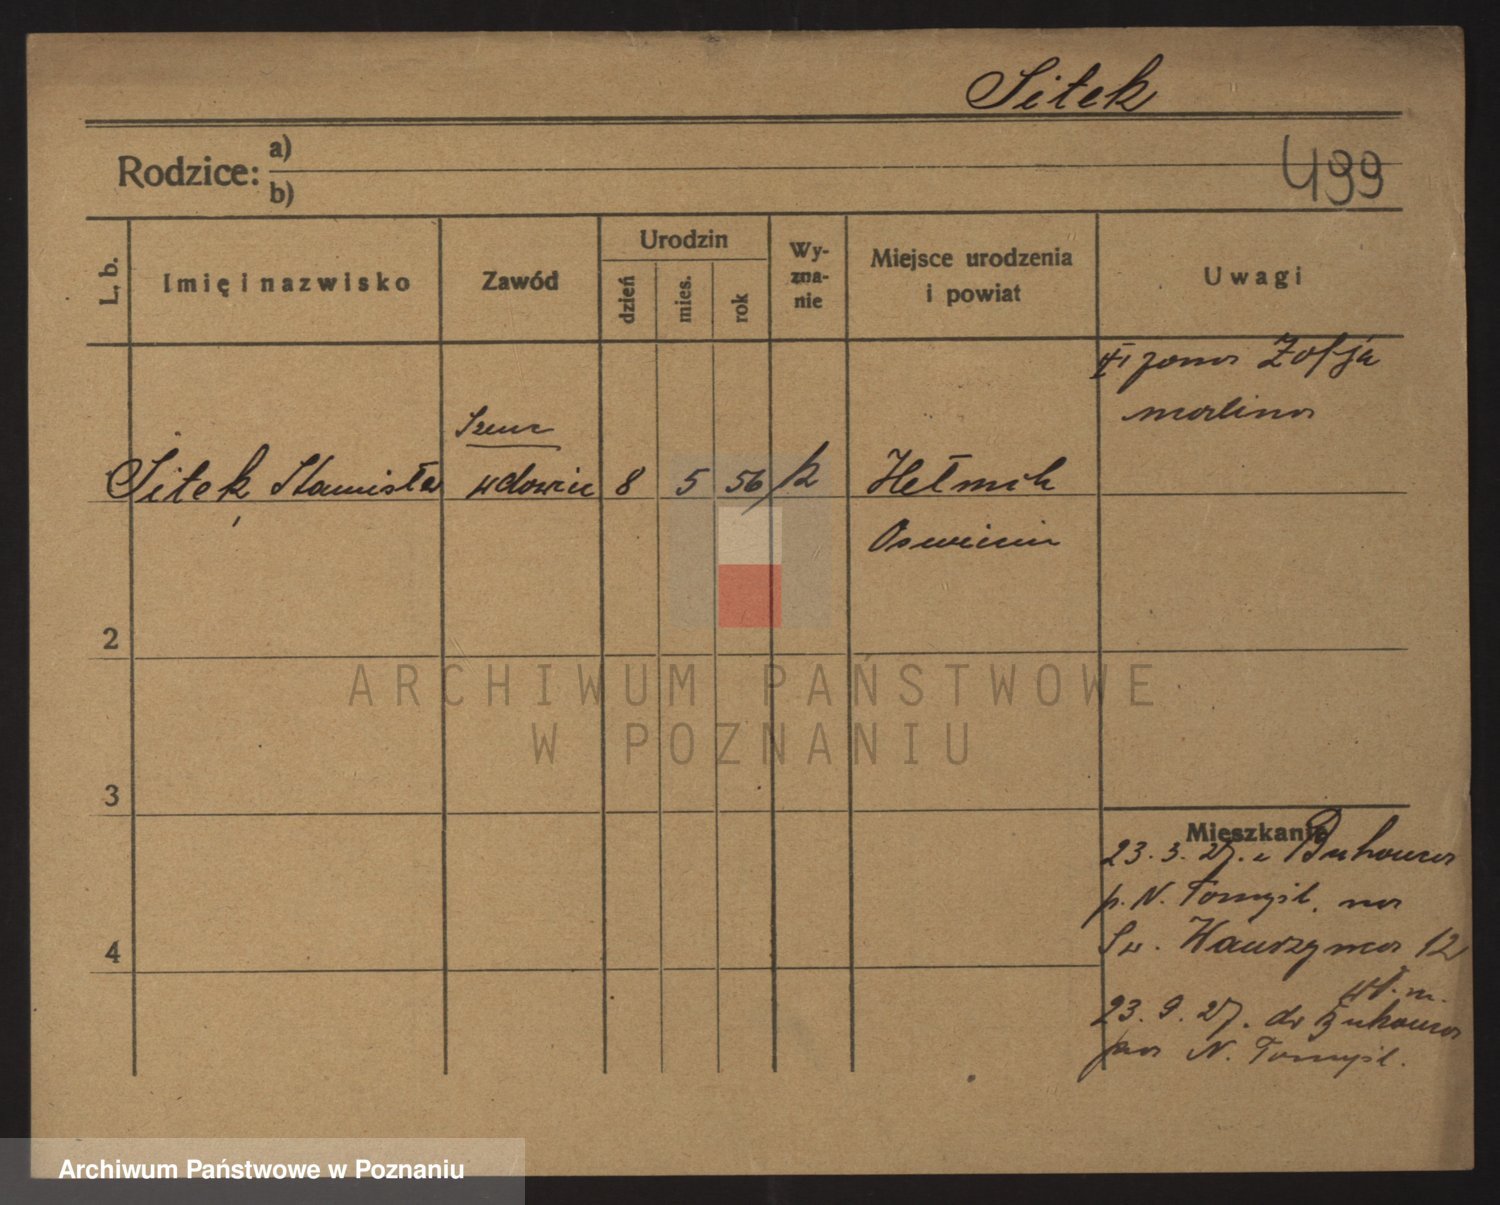 Sitek
Rodzice: a)
b)
499
L. b.
Imię i nazwisko
Zawód
Urodzin
dzień
mies.
rok
Wy-
zna-
nie
Miejsce urodzenia
i powiat
Uwagi
żona Zofja
Malina
Szewc
Sitek Stanisław
wdowiec
8
5
56
k
Hełmek
Oswiecim
2
ARCHIWUM PAŃSTWOWE
W POZNANIU
3
Mieszkanie
23. 3. 27. z Bukowca
p. N. Tomyśl. na
Św. Wawrzyńca 12
4
23. 9. 27. do Bukowca
N. Tomyśl.
Archiwum Państwowe w Poznaniu